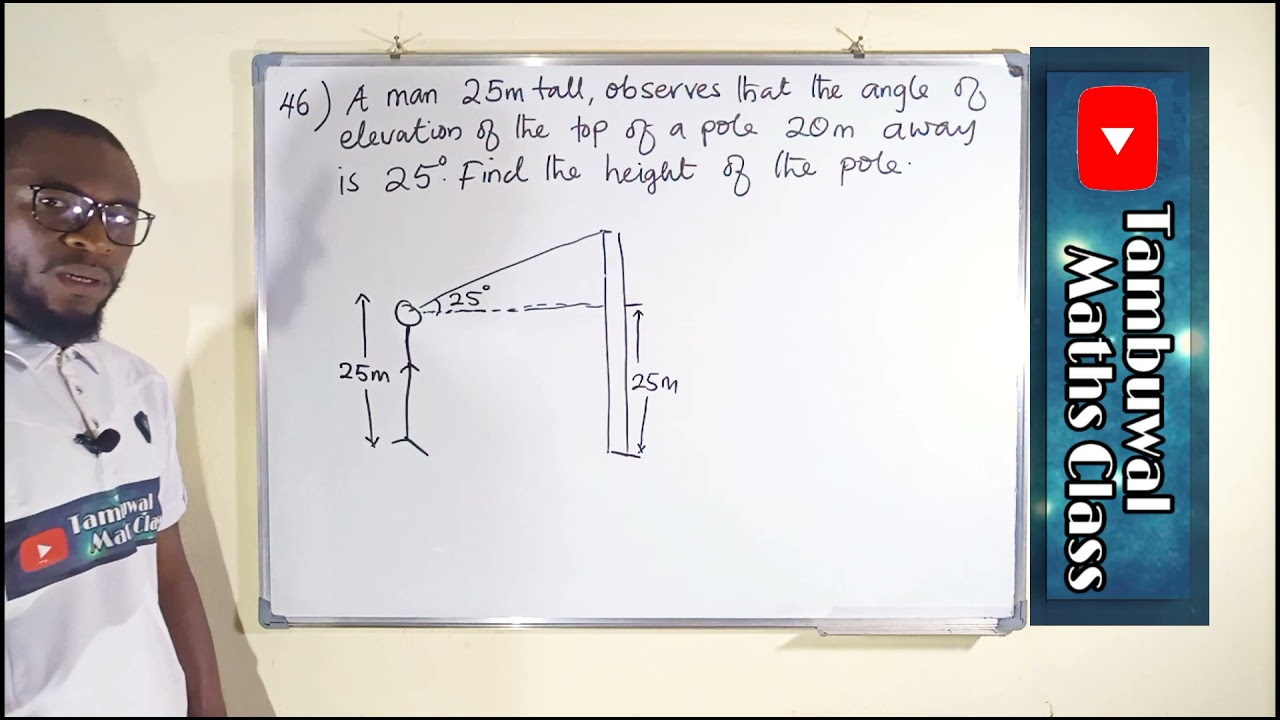 46) A man 25m tall, observes that the angle of
elevation of the top of a pole 20m away
is 25°. Find the height of the pole.
25°
25m
25m
Tambuwal
Maths Class
Tambuwal